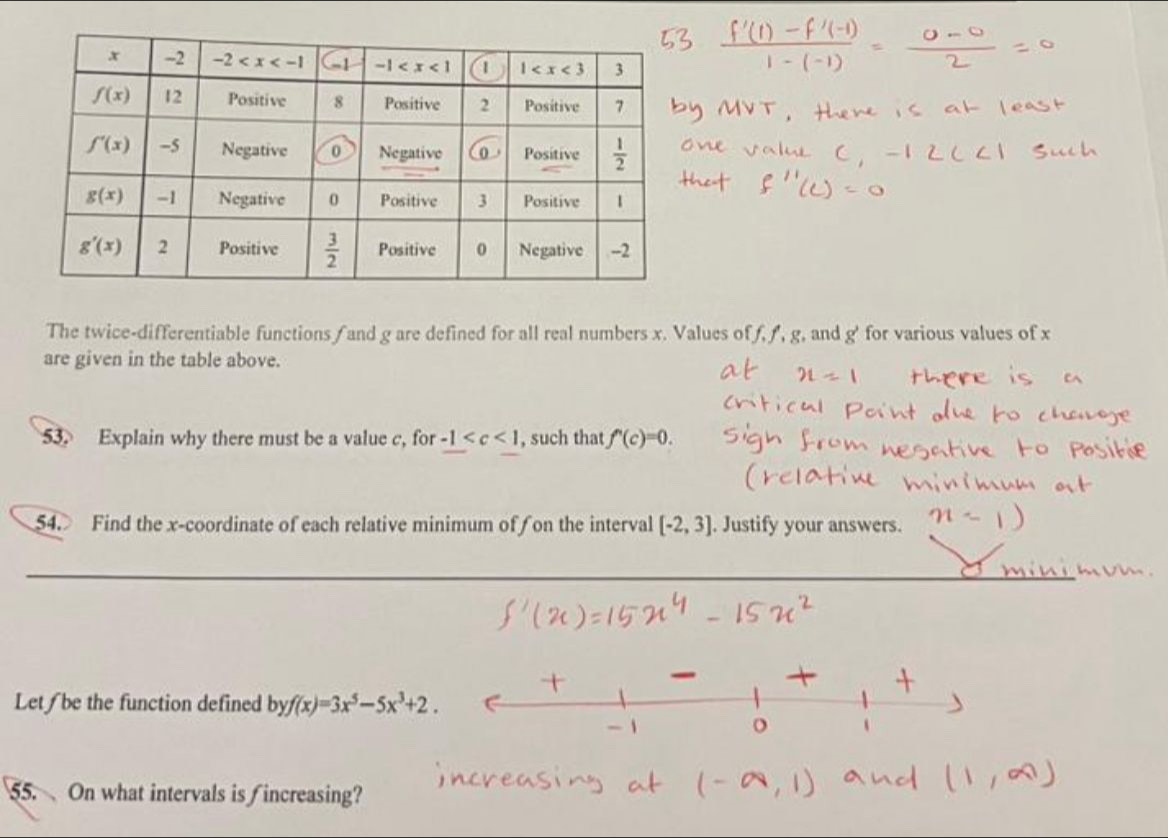 x -2 -2 < x < -1 -1 -1 < x < 1 1 1 < x < 3 3
f(x) 12 Positive 8 Positive 2 Positive 7
f'(x) -5 Negative 0 Negative 0 Positive 1/2
g(x) -1 Negative 0 Positive 3 Positive 1
g'(x) 2 Positive 3/2 Positive 0 Negative -2
53 f'(1) - f'(-1) / 1 - (-1) = 0 - 0 / 2 = 0
by MVT, there is at least
one value c, -1 < c < 1 such
that f''(c) = 0
The twice-differentiable functions f and g are defined for all real numbers x. Values of f, f', g, and g' for various values of x
are given in the table above.
at x = 1 there is a
critical point due to change
sign from negative to positive
(relative minimum at
x = 1)
minimum.
53. Explain why there must be a value c, for -1 < c < 1, such that f''(c)=0.
54. Find the x-coordinate of each relative minimum of f on the interval [-2, 3]. Justify your answers.
f'(x) = 15x⁴ - 15x²
Let f be the function defined by f(x)=3x⁵-5x³+2.
+ - + +
-1 0 1
55. On what intervals is f increasing?
increasing at (-∞, 1) and (1, ∞)